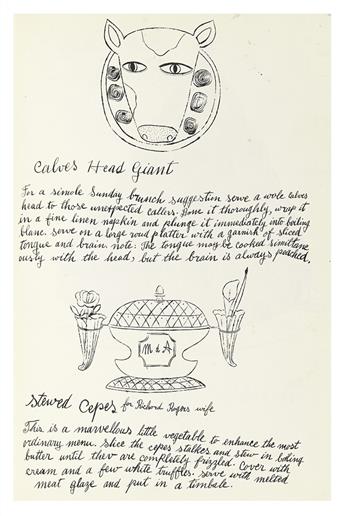 Calves Head Giant
For a simole Sunday brunch suggestin serve a wole calves
head to those unexpected callers. Bone it thoroughly, wrap it
in a fine linen napkin and pelunge it immediately into boiling
blanc. serve on a large roud platter with a garnish of sliced
tongue and brain. note: The tongue may be cooked simittane
ously with the head, but the brain is always poached.
M d A
Stewed Cepes for Richard Rogers wife
This is a marvellous little vegetable to enhance the most
ordinary menu. slice the cepes stalkes and stew in boling
butter until thev are completely frizzled. Cover with
cream and a few white truffles. serve with melted
meat glaze and put in a timbele.